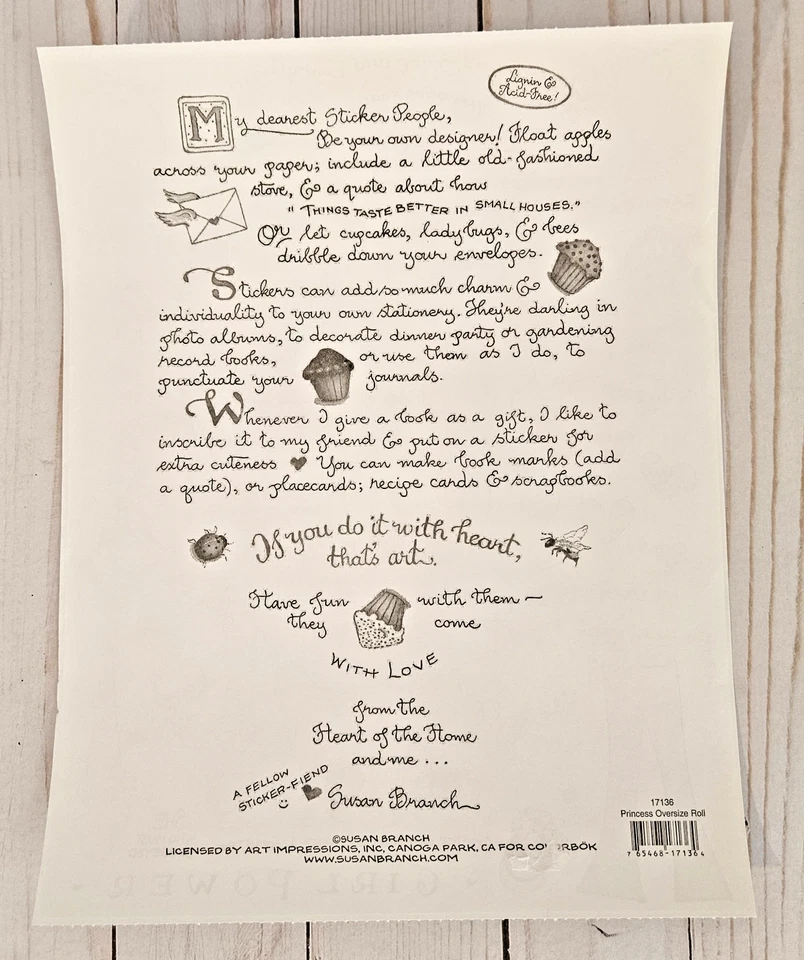 Lignin &
Acid-Free!
My dearest Sticker People,
Be your own designer! Float apples
across your paper; include a little old-fashioned
stove, & a quote about how
"THINGS TASTE BETTER IN SMALL HOUSES."
Or let cupcakes, ladybugs, & bees
dribble down your envelopes.
Stickers can add so much charm &
individuality to your own stationery. They're darling in
photo albums, to decorate dinner party or gardening
record books, or use them as I do, to
punctuate your journals.
Whenever I give a book as a gift, I like to
inscribe it to my friend & put on a sticker for
extra cuteness ♥ You can make book marks (add
a quote), or placecards; recipe cards & scrapbooks.
If you do it with heart,
that's art.
Have fun with them —
they come
WITH LOVE
from the
Heart of the Home
and me ...
A FELLOW
STICKER-FIEND
Susan Branch
©SUSAN BRANCH
LICENSED BY ART IMPRESSIONS, INC, CANOGA PARK, CA FOR
WWW.SUSANBRANCH.COM
17136
Princess Oversize Roll
7 65468-17136 4
GIRL POWER